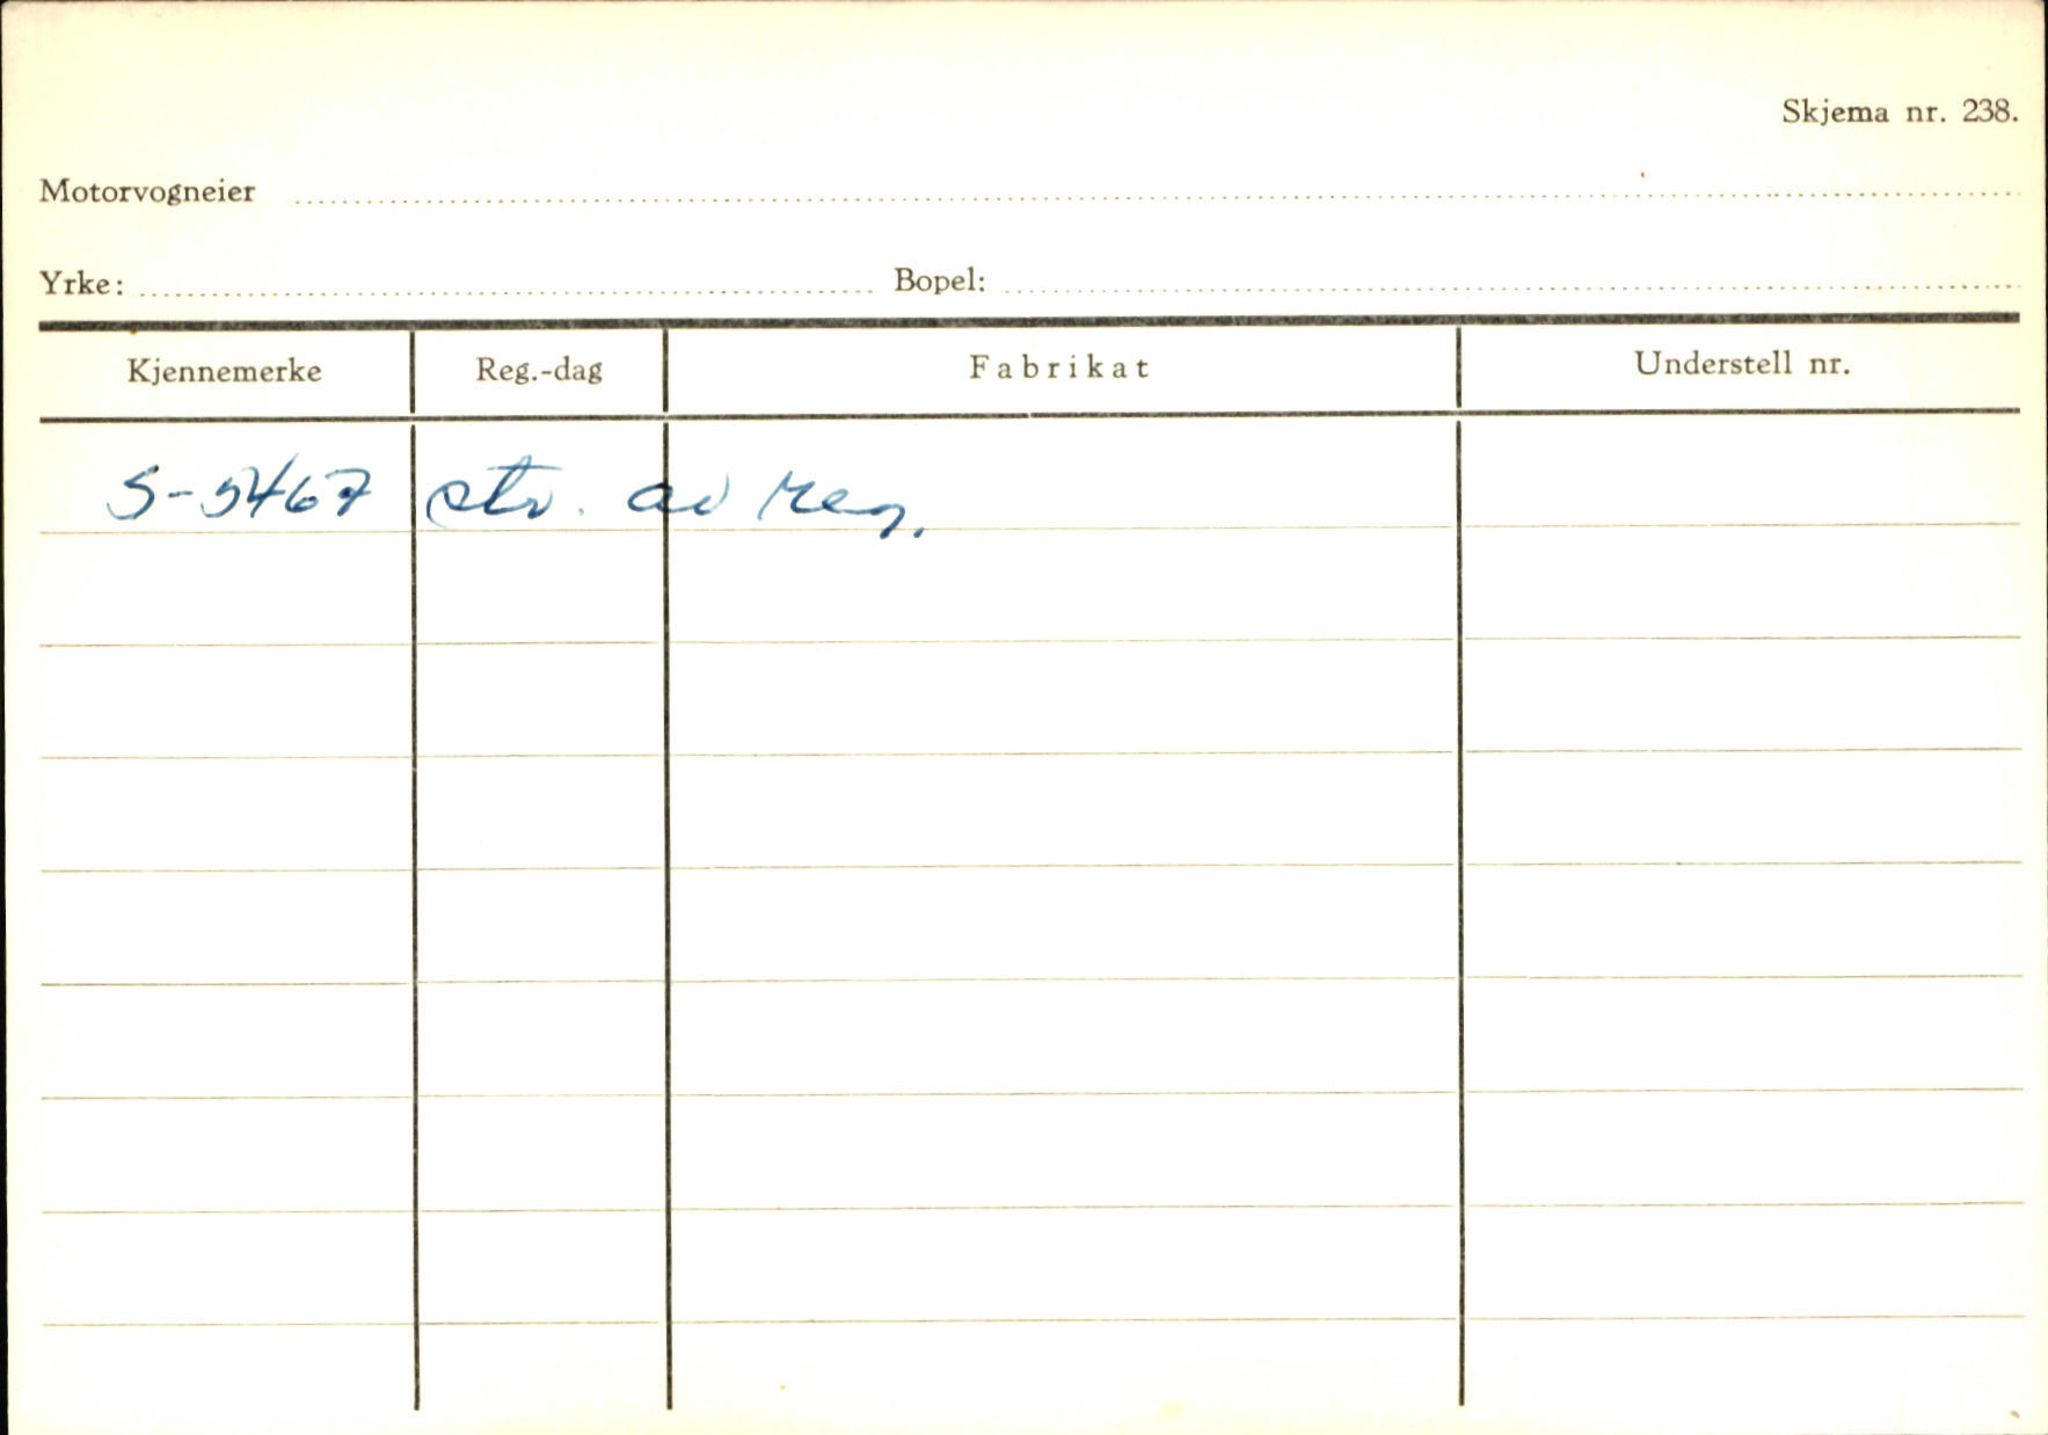 Skjema nr. 238.
Motorvogneier
Yrke: Bopel:
Kjennemerke Reg.-dag Fabrikat Understell nr.
S-5467 str. av reg.